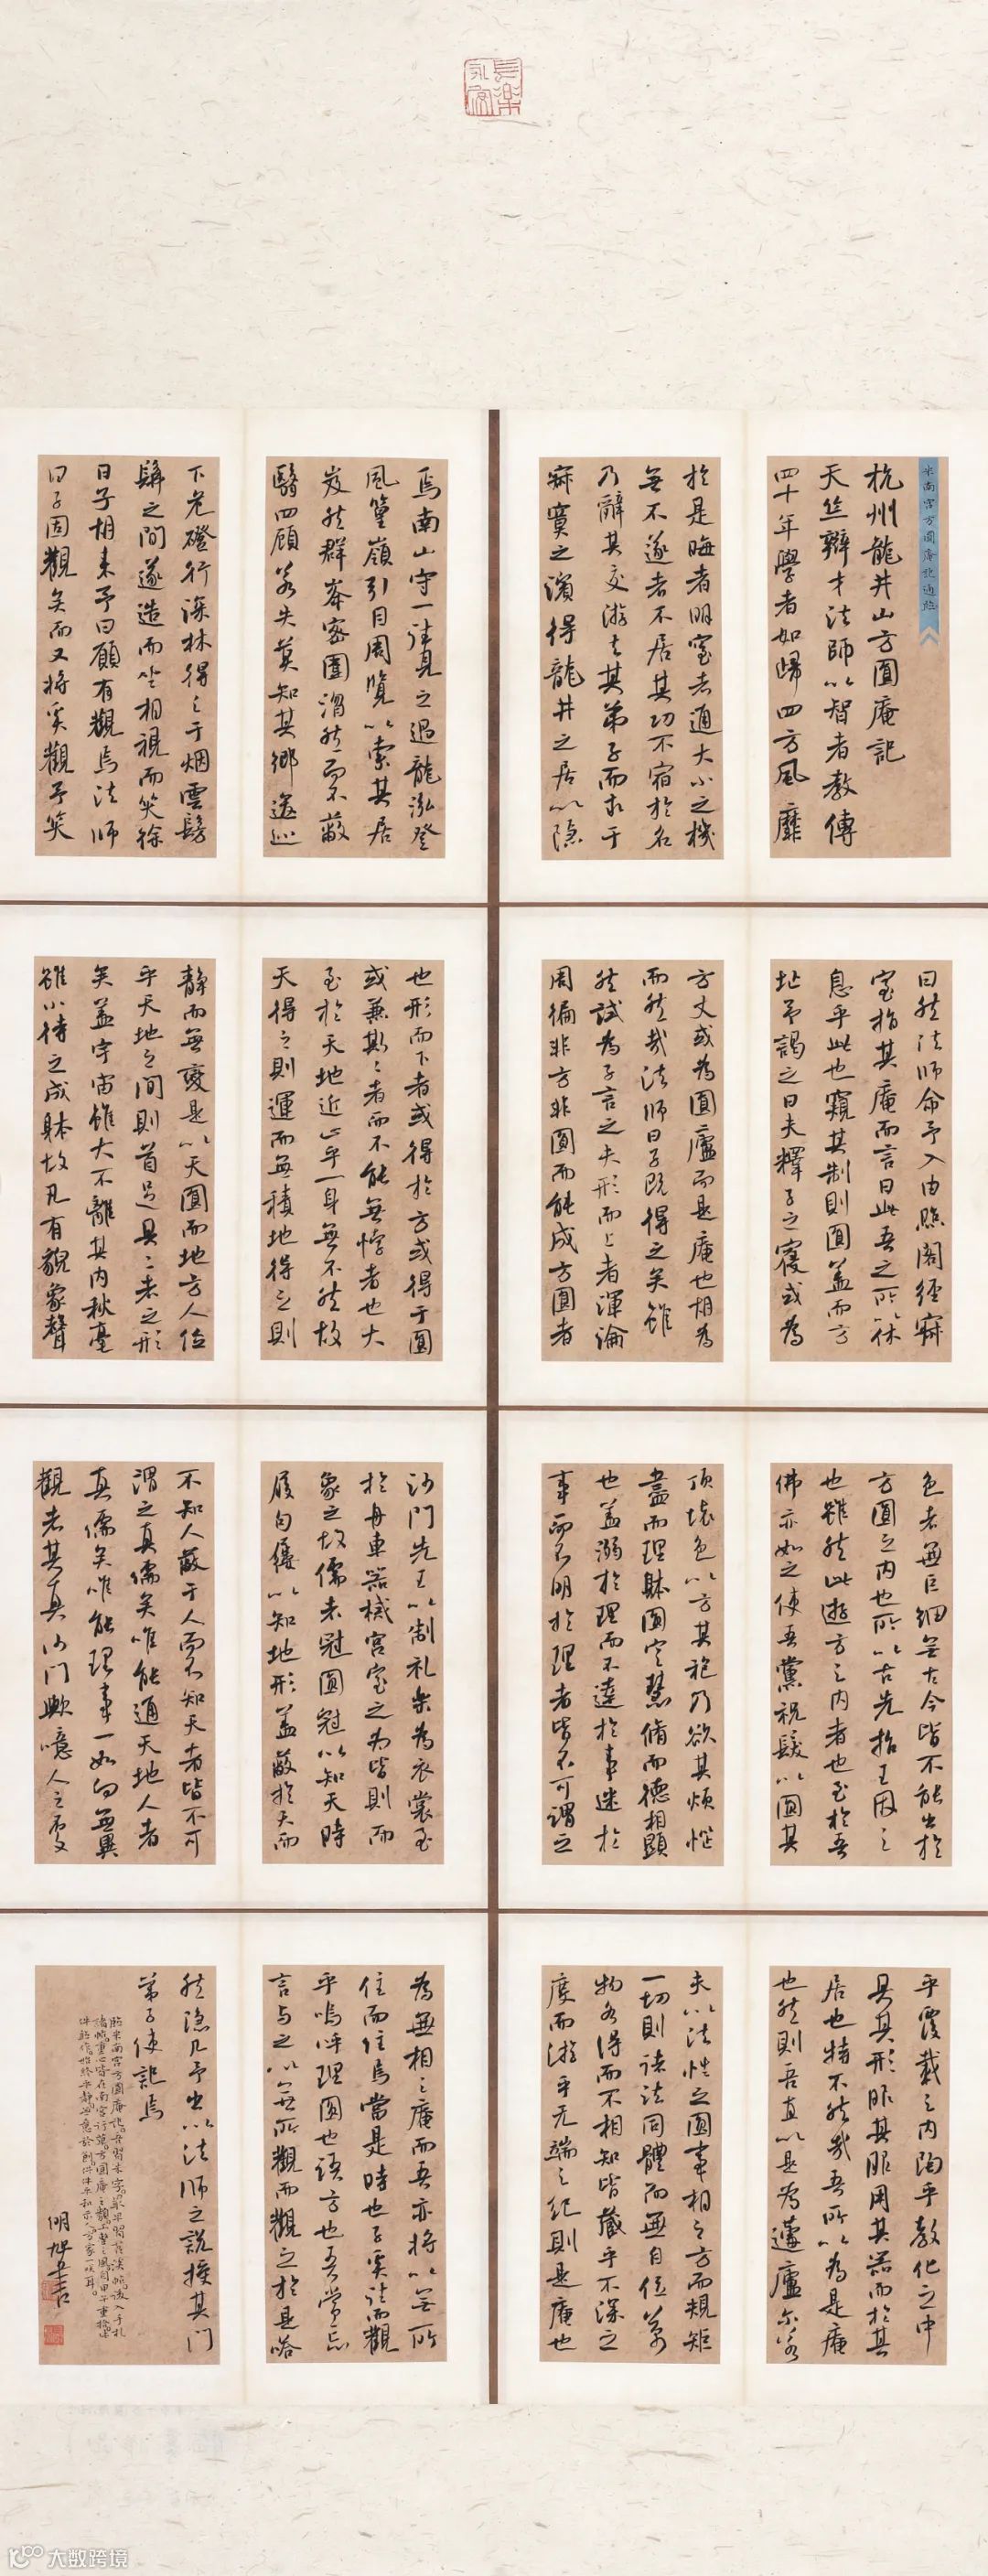 米南宮方圓庵記通臨
杭州龍井山方圓庵記
天竺辯才法師以智者教傳
四十年學者如歸四方風靡
於是晦者明窒者通大小之機
無不遂者不居其功不宿於名
乃辭其交游去其弟子而求于
寂寞之濱得龍井之居以隱
焉南山守一往見之過龍泓登
風篁嶺引目周覽以索其居
岌然群峰密圍溜然而不蔽
翳四顧若失莫知其鄉逡巡
下危磴行深林得之于烟雲髣
髴之間遂造而坐相視而笑徐
曰子胡來予曰願有觀焉法師
曰子固觀矣而又將奚觀予笑
曰然法師命予入由照閣經寂
室指其庵而言曰此吾之所以休
息乎此也窺其制則圓蓋而方
址予謁之曰夫釋子之寢或為
方丈或為圓廬而是庵也胡為
而然哉法師曰子既得之矣雖
然試為子言之夫形而上者渾淪
周徧非方非圓而能成方圓者
也形而下者或得於方或得于圓
或兼斯二者而不能無悖者也大
至於天地近止乎一身無不然故
天得之則運而無積地得之則
靜而無變是以天圓而地方人位
乎天地之間則首足具二者之形
矣蓋宇宙雖大不離其內秋毫
雖小待之成體故凡有貌象聲
色者無巨細無古今皆不能出於
方圓之內也所以古先哲王因之
也雖然此遊方之內者也至於吾
佛亦如之使吾黨祝髮以圓其
頂壞色以方其袍乃欲其煩惱
盡而理體圓定慧脩而德相顯
也蓋溺於理而不達於事迷於
事而不明於理者皆不可謂之
沙門先王以制礼樂為衣裳至
於舟車器械宮室之為皆則而
象之故儒者冠圓冠以知天時
履句屨以知地形蓋蔽於天而
不知人蔽于人而不知天者皆不可
謂之真儒矣唯能通天地人者
真儒矣唯能理事一如向無異
觀者其真沙門歟噫人之處
乎覆載之內陶乎教化之中
具其形服其服用其器而於其
居也特不然哉吾所以為是庵
也然則吾直以是為蘧廬爾若
夫以法性之圓事相之方而規矩
一切則諸法同體而無自位萬
物各得而不相知皆藏乎不深之
度而游乎无端之紀則是庵也
為無相之庵而吾亦將以無所
住而住焉當是時也子奚往而觀
乎嗚呼理圓也語方也吾當忘
言与之以無所觀而觀之於是嗒
然隱几予出以法師之說授其門
弟子使記焉